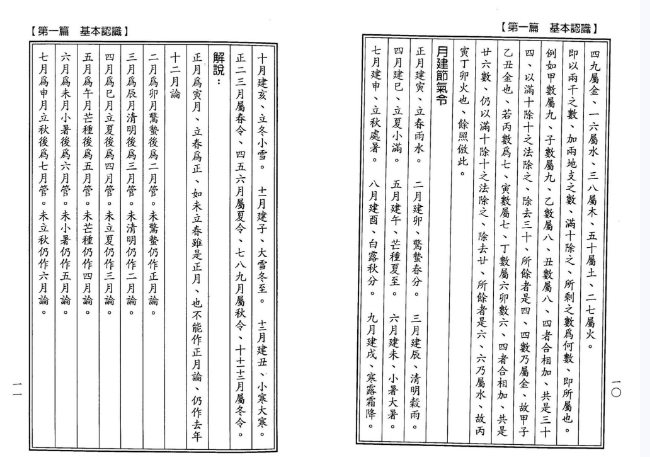 【第一篇　基本認識】
四九屬金、一六屬水、三八屬木、五十屬土、二七屬火。
即以兩干之數、加兩地支之數、滿十除之、所剩之數爲何數、即所屬也。
例如甲數屬九、子數屬九、乙數屬八、丑數屬八、四者合相加、共是三十
四、以滿十除十之法除之、除去三十、所餘者是四、四數乃屬金、故甲子
乙丑金也。若丙數爲七、寅數屬七、丁數屬六卯數六、四者合相加、共是
廿六數、仍以滿十除十之法除之、除去廿、所餘者是六、六乃屬水、故丙
寅丁卯火也、餘照倣此。
月建節氣令
正月建寅、立春雨水。　二月建卯、驚蟄春分。　三月建辰、清明穀雨。
四月建巳、立夏小滿。　五月建午、芒種夏至。　六月建未、小暑大暑。
七月建申、立秋處暑。　八月建酉、白露秋分。　九月建戌、寒露霜降。
一〇
【第一篇　基本認識】
十月建亥、立冬小雪。　十一月建子、大雪冬至。　十二月建丑、小寒大寒。
正二三月屬春令、四五六月屬夏令、七八九月屬秋令、十十一十二月屬冬令。
解說：
正月爲寅月、立春爲正、如未立春雖是正月、也不能作正月論、仍作去年
十二月論
二月爲卯月驚蟄後爲二月管。未驚蟄仍作正月論。
三月爲辰月清明後爲三月管。未清明仍作二月論。
四月爲巳月立夏後爲四月管。未立夏仍作三月論。
五月爲午月芒種後爲五月管。未芒種仍作四月論。
六月爲未月小暑後爲六月管。未小暑仍作五月論。
七月爲申月立秋後爲七月管。未立秋仍作六月論。
一一